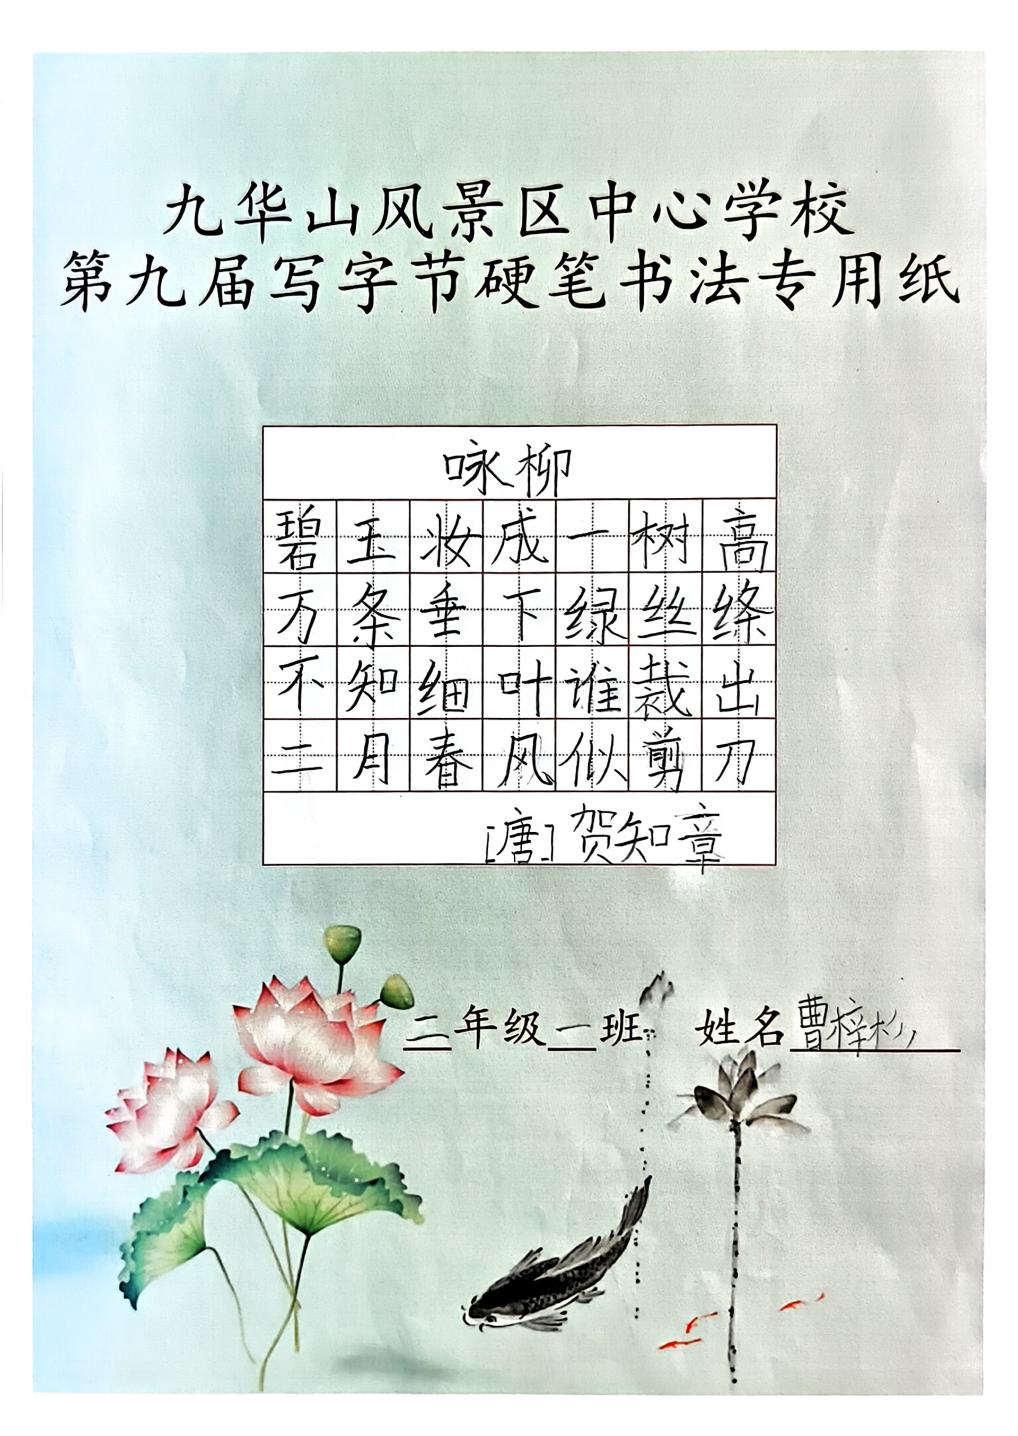 九华山风景区中心学校
第九届写字节硬笔书法专用纸
咏柳
碧玉妆成一树高
万条垂下绿丝绦
不知细叶谁裁出
二月春风似剪刀
[唐]贺知章
二年级一班 姓名曹梓杉